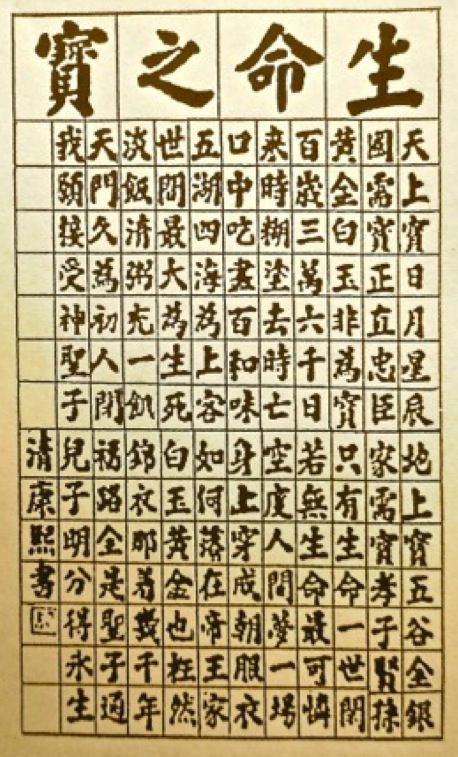 生命之寶
天上寶日月星辰地上寶五谷金銀
國需寶正直忠臣家需寶孝子賢孫
黃金白玉非為寶只有生命一世閒
百歲三萬六千日若無生命最可憐
來時糊塗去時亡空度人間夢一場
口中吃盡百和味身上穿成朝服衣
五湖四海為上客如何落在帝王家
世間最大為生死白玉黃金也枉然
淡飯清粥充一飢錦衣那着幾千年
天門久為初人閉福路全是聖子通
我願接受神聖子兒子明分得永生
清康熙書